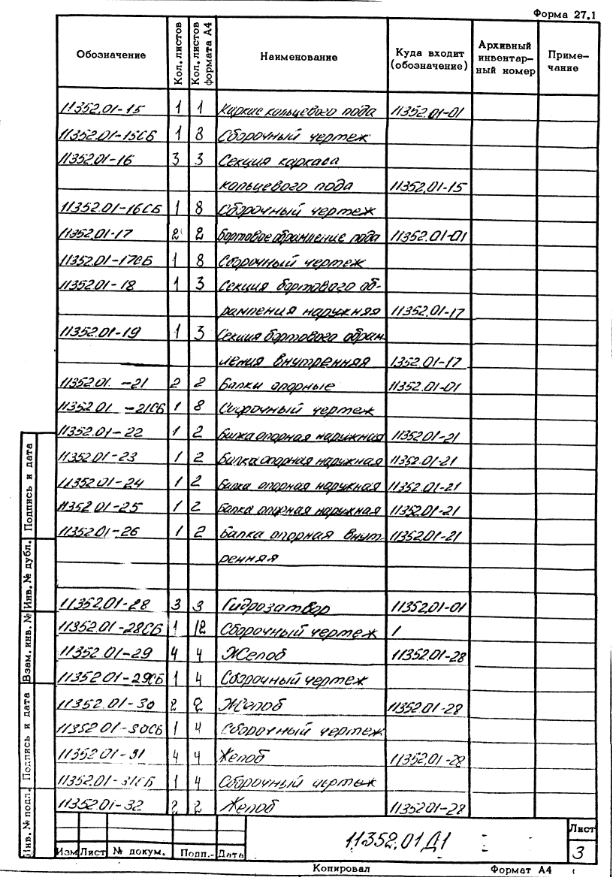 Форма 27.1
Обозначение Кол. листов Кол. листов формата А4 Наименование Куда входит (обозначение) Архивный инвентар-ный номер Приме-чание
11352.01-15 1 1 Каркас кольцевого пода 11352.01-01
11352.01-15СБ 1 8 Сборочный чертеж
11352.01-16 3 3 Секция каркаса
кольцевого пода 11352.01-15
11352.01-16СБ 1 8 Сборочный чертеж
11352.01-17 2 2 Бортовое обрамление пода 11352.01-01
11352.01-17СБ 1 8 Сборочный чертеж
11352.01-18 1 3 Секция бортового об-
рамления наружняя 11352.01-17
11352.01-19 1 3 Секция бортового обрам-
ления внутренняя 1352.01-17
11352.01-21 2 2 Балки опорные 11352.01-01
11352.01-21СБ 1 8 Сборочный чертеж
11352.01-22 1 2 Балка опорная наружная 11352.01-21
11352.01-23 1 2 Балка опорная наружная 11352.01-21
11352.01-24 1 2 Балка опорная наружная 11352.01-21
11352.01-25 1 2 Балка опорная наружная 11352.01-21
11352.01-26 1 2 Балка опорная внут- 11352.01-21
ренняя
11352.01-28 3 3 Гидрозатвор 11352.01-01
11352.01-28СБ 1 12 Сборочный чертеж 1
11352.01-29 4 4 Желоб 11352.01-28
11352.01-29СБ 1 4 Сборочный чертеж
11352.01-30 2 2 Желоб 11352.01-28
11352.01-30СБ 1 4 Сборочный чертеж
11352.01-31 4 4 Желоб 11352.01-28
11352.01-31СБ 1 4 Сборочный чертеж
11352.01-32 2 2 Желоб 11352.01-28
Инв. № подл. Подпись и дата Взам. инв. № Инв. № дубл. Подпись и дата
Изм Лист № докум. Подп. Дата
11352.01 Д1
Лист
3
Копировал Формат А4